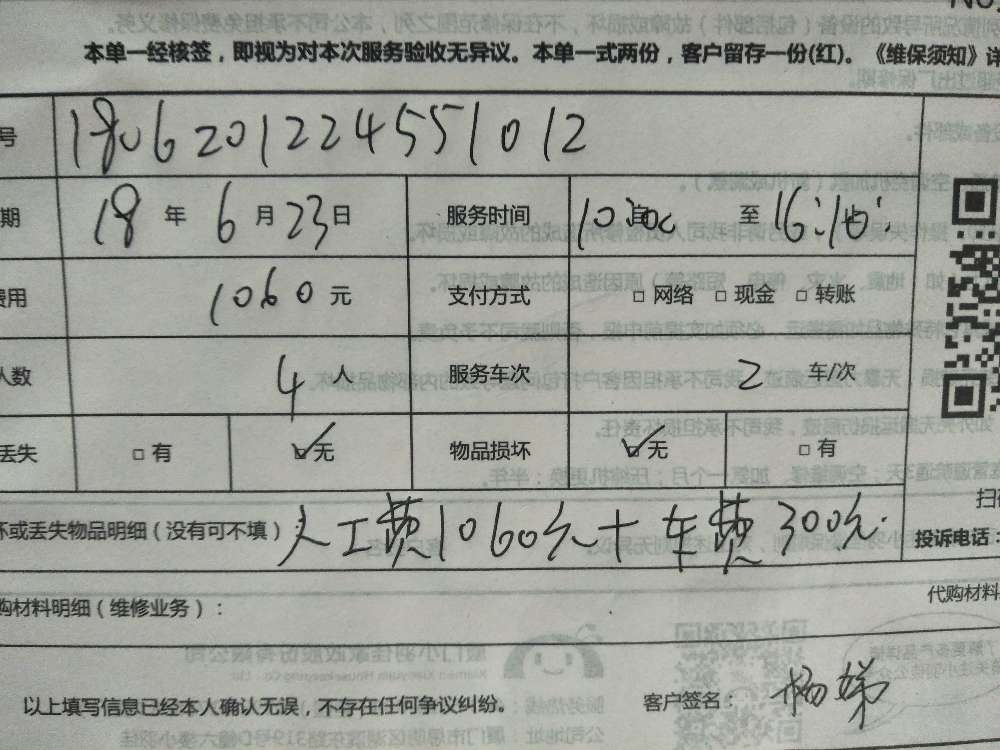 No.
本单一经核签，即视为对本次服务验收无异议。本单一式两份，客户留存一份(红)。《维保须知》详
号 180620122455101 2
期 18 年 6 月 23 日 服务时间 10:30 至 16:10
费用 1060 元 支付方式 □ 网络 □ 现金 □ 转账
人数 4 人 服务车次 2 车/次
丢失 □ 有 ☑ 无 物品损坏 ☑ 无 □ 有
扫
坏或丢失物品明细（没有可不填）：人工费1060元+车费300元.
投诉电话：
购材料明细（维修业务）：
代购材料
以上填写信息已经本人确认无误，不存在任何争议纠纷。 客户签名：杨娣